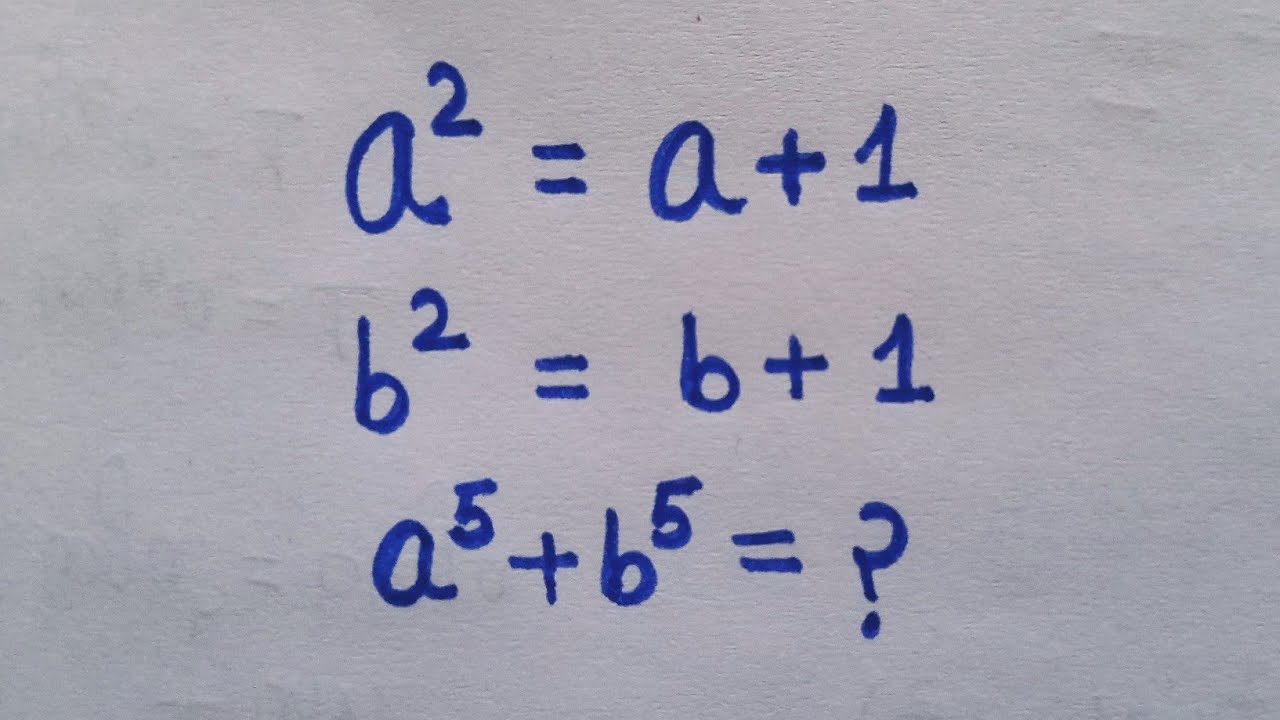 a² = a + 1
b² = b + 1
a⁵ + b⁵ = ?